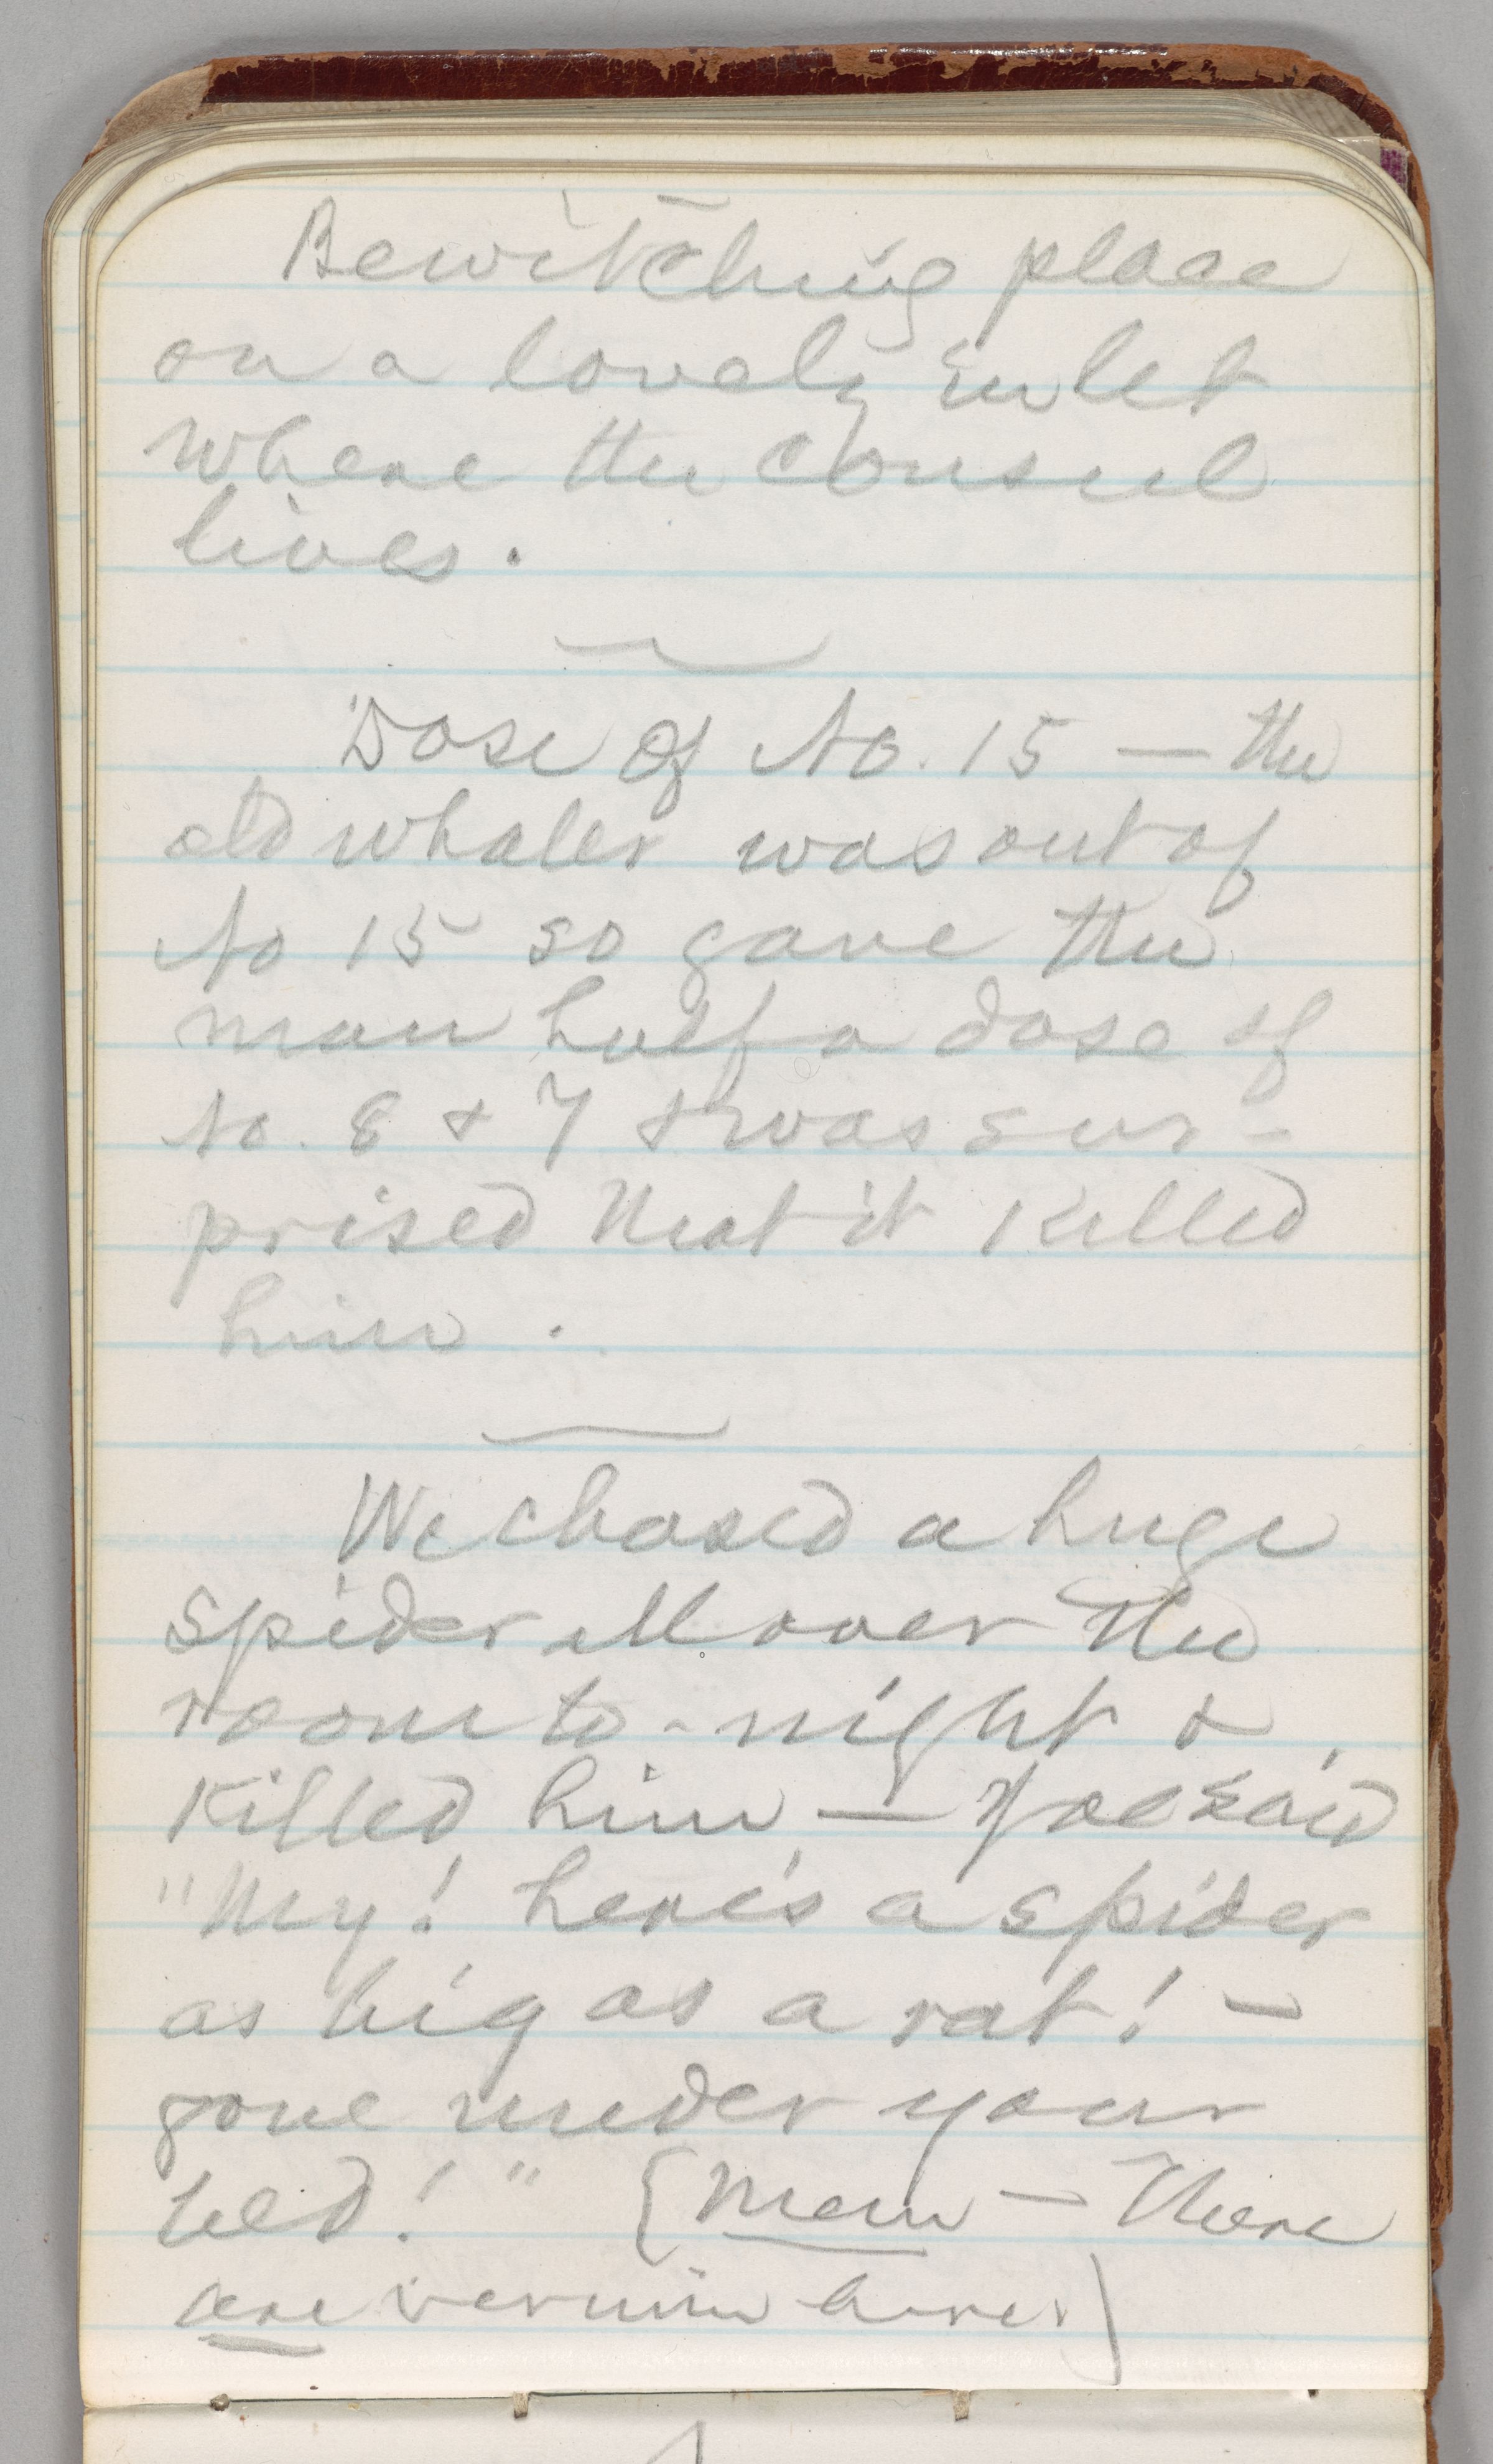 Bewitching place
on a lovely inlet
where the consul
lives.
Dose of No. 15 — the
old whaler was out of
No 15 so gave the
man half a dose of
No. 8 & 7 & was sur-
prised that it killed
him.
We chased a huge
spider all over the
room to-night &
killed him — Joe said
"My! here's a spider
as big as a rat! —
gone under your
bed!" {Mem — There
are vermin here)